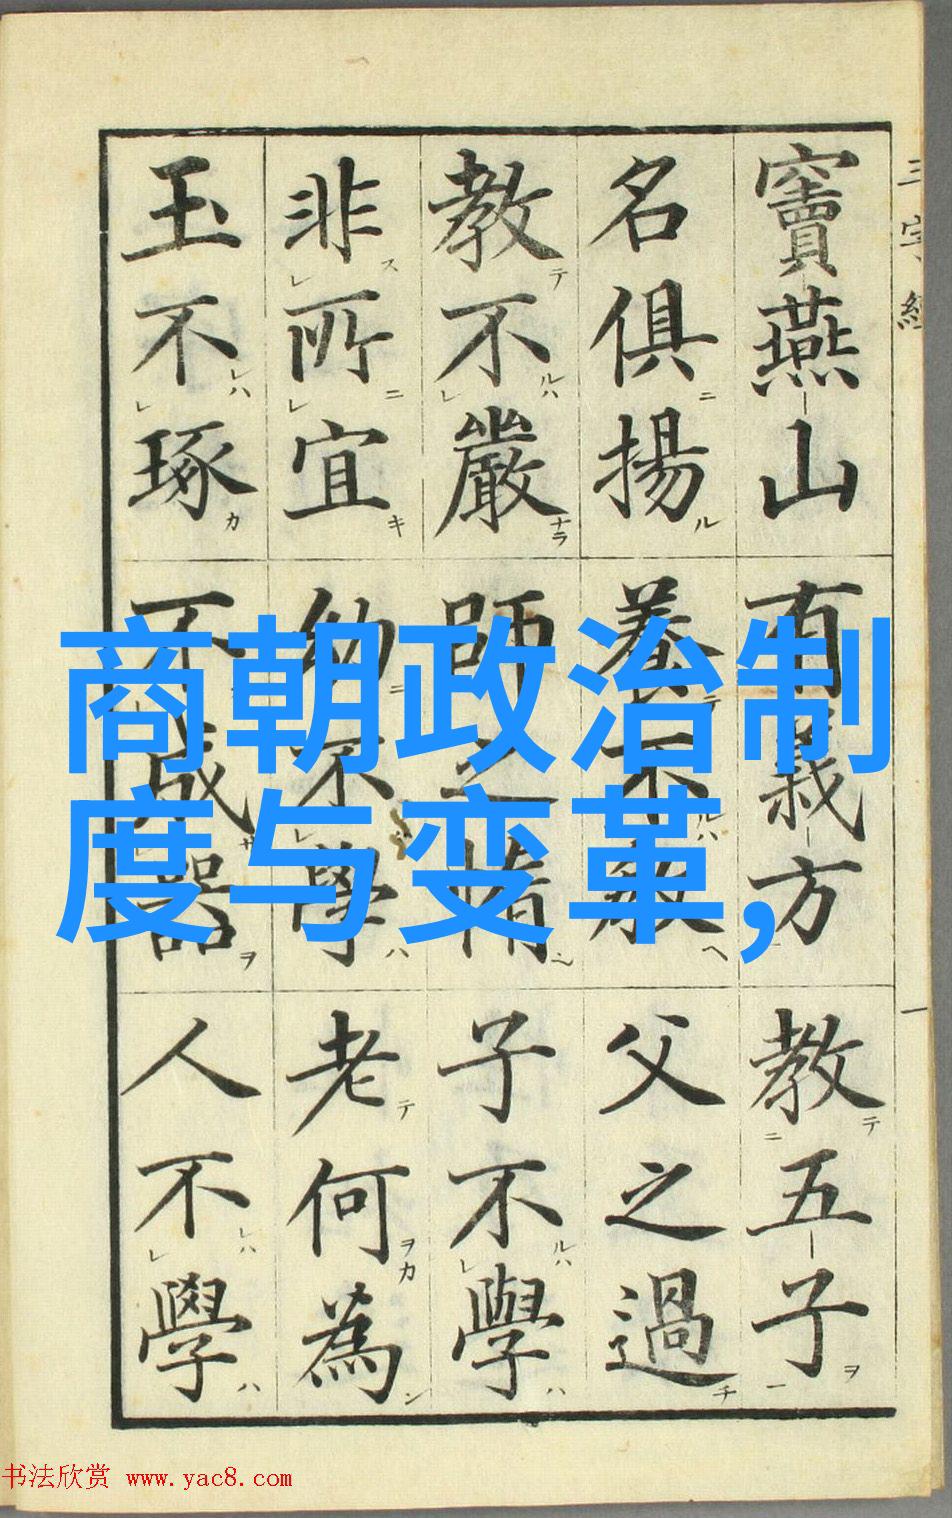 三字經 一
竇燕山 有義方 教五子
名俱揚 養不教 父之過
教不嚴 師之惰 子不學
非所宜 幼不學 老何為
玉不琢 不成器 人不學
商朝政治制
度与变革,
书法欣赏 www.yac8.com